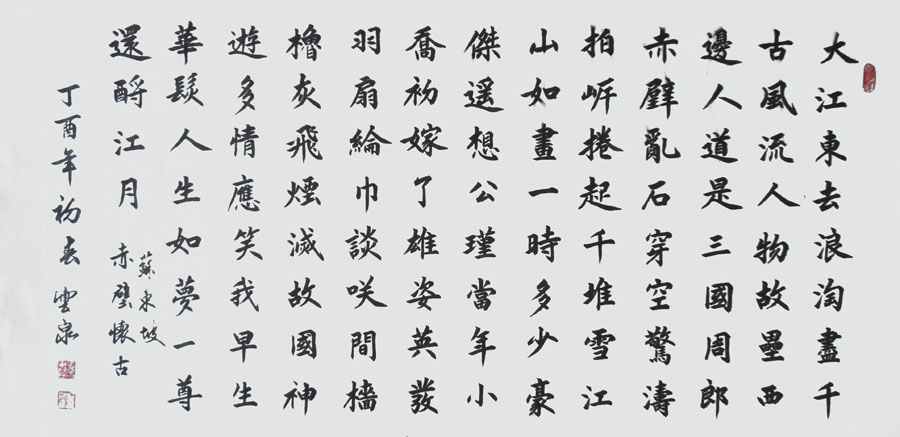 大江東去浪淘盡千
古風流人物故壘西
邊人道是三國周郎
赤壁亂石穿空驚濤
拍岍捲起千堆雪江
山如畫一時多少豪
傑遥想公瑾當年小
喬初嫁了雄姿英發
羽扇綸巾談咲間檣
櫓灰飛煙滅故國神
遊多情應笑我早生
華髮人生如夢一尊
還酹江月
蘇東坡
赤壁懷古
丁酉年初春 雲泉